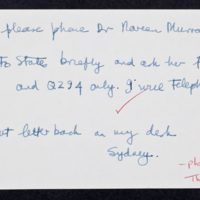 please phone Dr Naveen Murra
To State briefly and ask her f
and Q294 only. I'will Teleph
ut letter back on my desk
Sydney.
- ph
Th